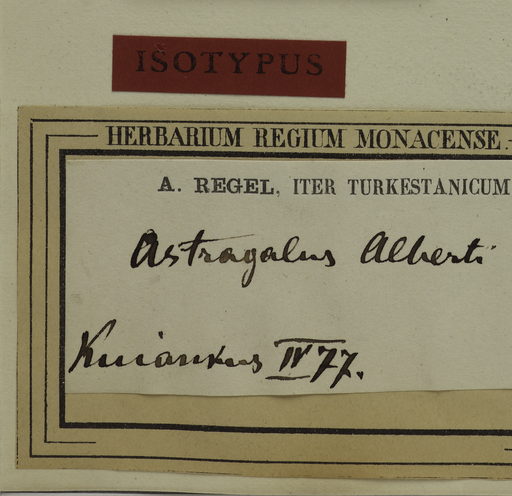 IŠOTYPUS
HERBARIUM REGIUM MONACENSE.
A. REGEL, ITER TURKESTANICUM
Astragalus Alberti
Kuiankus IV 77.